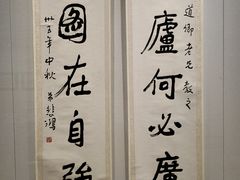 道卿老兄教之
廬何必廣
圖在自強
卅五年中秋
弟悲鴻